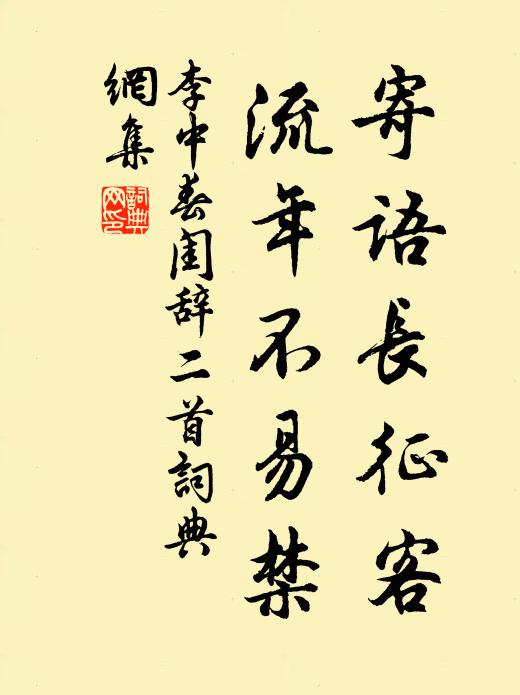 寄語長征客
流年不易禁
李中春闺辞二首詞典
網集
詞典网印